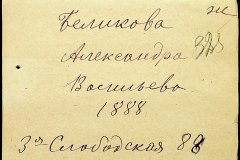 Беликова
Александра
Васильева
1888
3я Слободская 88